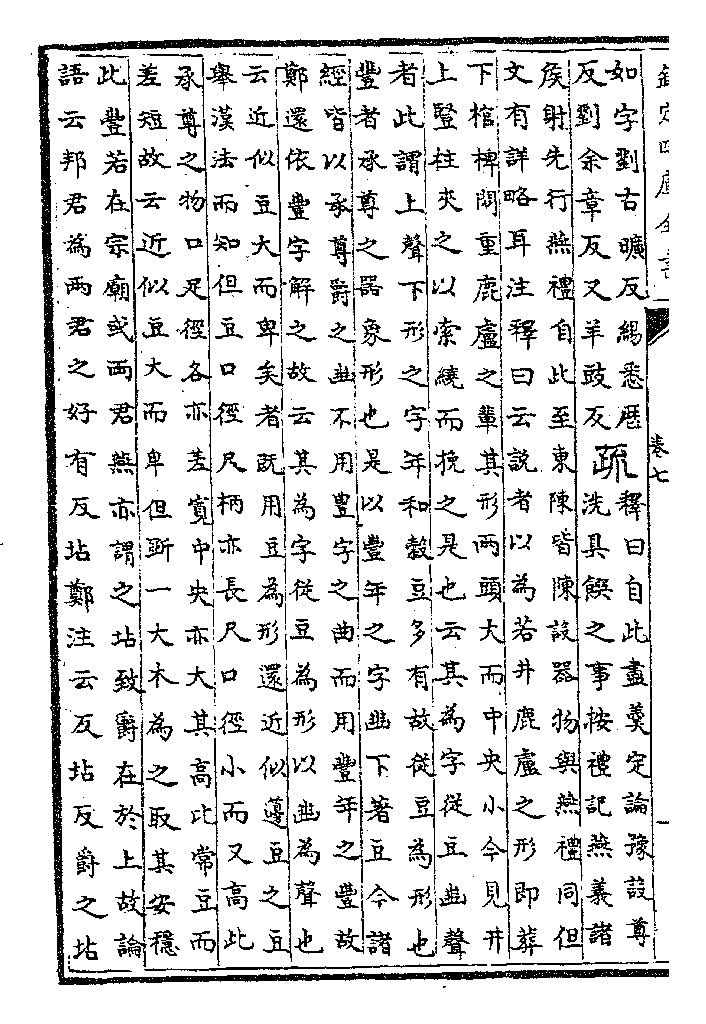 欽定四庫全書
卷七
一
如字劉古曠反緆悉厯
反劉余章反又羊豉反
疏
釋曰自此盡羹定論豫設尊
洗具饌之事按禮記燕義諸
侯射先行燕禮自此至東陳皆陳設器物與燕禮同但
文有詳略耳注釋曰云說者以為若井鹿盧之形即葬
下棺椑間重鹿盧之輩其形兩頭大而中央小今見井
上豎柱夾之以索繞而挽之是也云其為字從豆幽聲
者此謂上聲下形之字年和穀豆多有故從豆為形也
豐者承尊之器象形也是以豐年之字幽下著豆今諸
經皆以承尊爵之幽不用豊字之曲而用豐年之豐故
鄭還依豐字解之故云其為字從豆為形以幽為聲也
云近似豆大而卑矣者既用豆為形還近似籩豆之豆
舉漢法而知但豆口徑尺柄亦長尺口徑小而又高此
承尊之物口足徑各亦差寬中央亦大其高此常豆而
差短故云近似豆大而卑但斲一大木為之取其安穩
此豐若在宗廟或兩君燕亦謂之坫致爵在於上故論
語云邦君為兩君之好有反坫鄭注云反坫反爵之坫